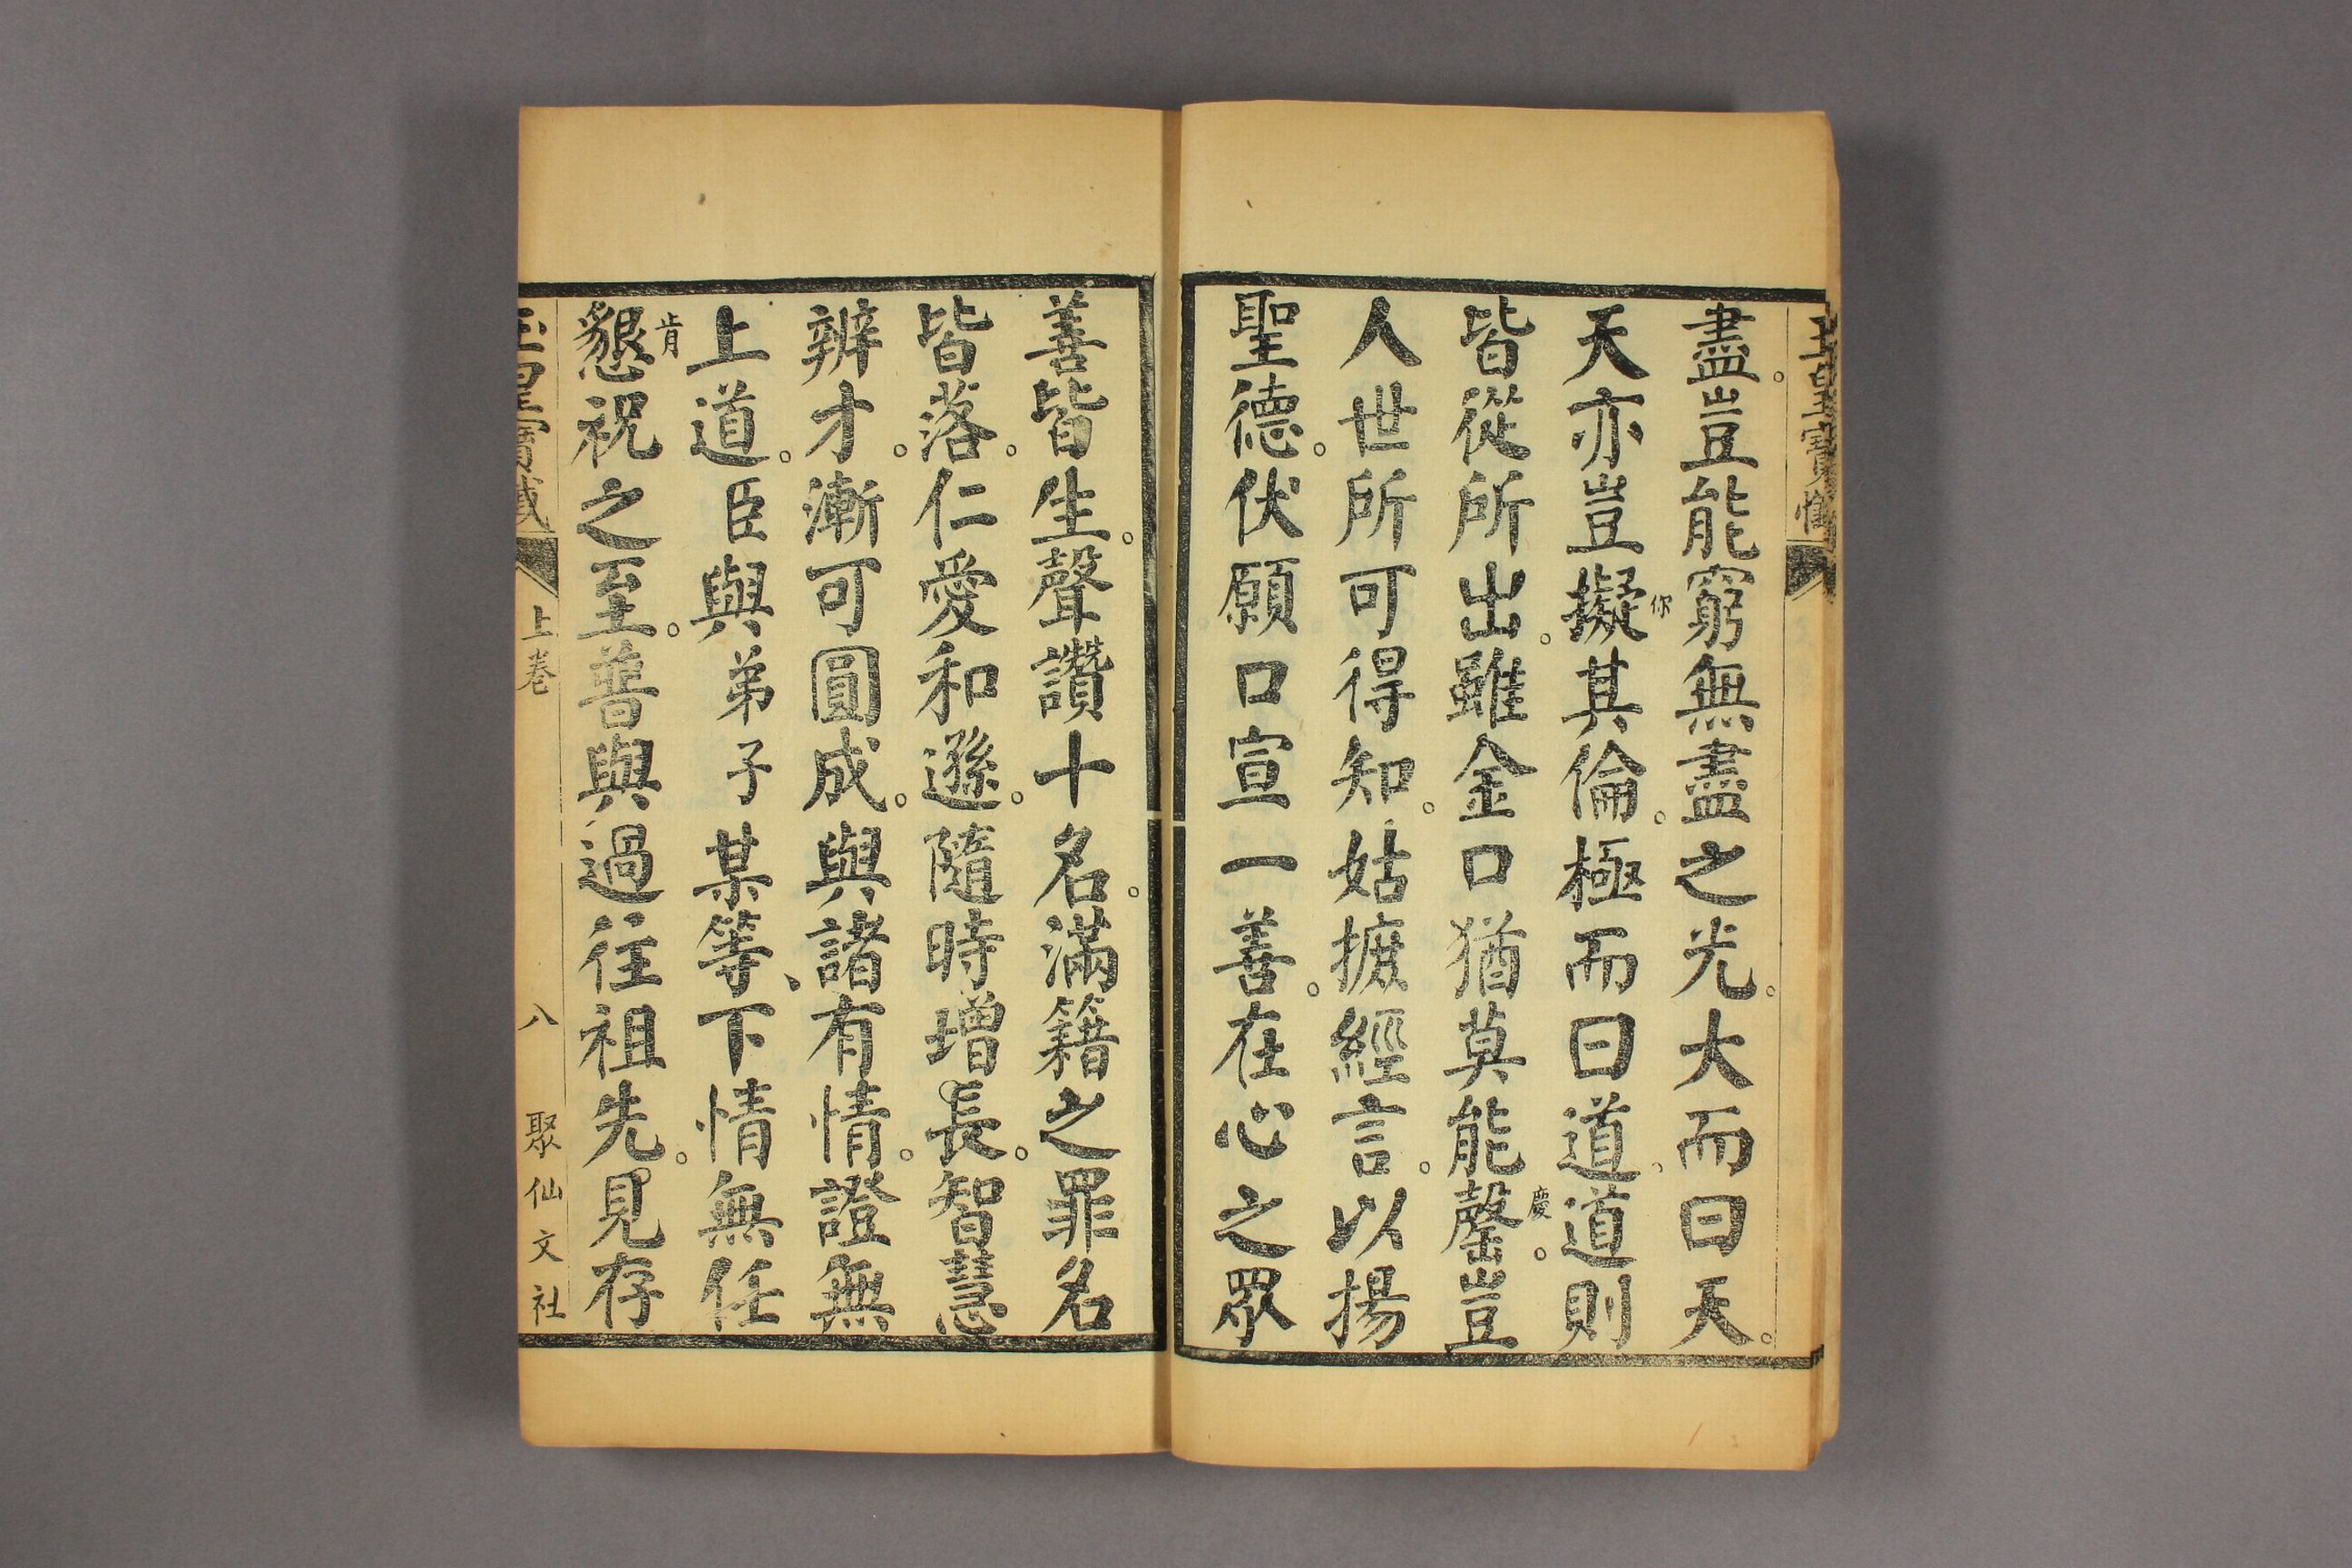 玉皇寶懺
盡。豈能窮無盡之光。大而曰天。
天亦豈擬你其倫。極而曰道。道則
皆從所出。雖金口猶莫能罄慶。豈
人世所可得知。姑摭經言。以揚
聖德。伏願口宣一善。在心之眾
善皆生。聲讚十名。滿籍之罪名
皆落。仁愛和遜。隨時增長。智慧
辨才。漸可圓成。與諸有情。證無
上道。臣與弟子某等、下情無任
懇肯祝之至。普與過往祖先。見存
玉皇寶懺 上卷 八 聚仙文社